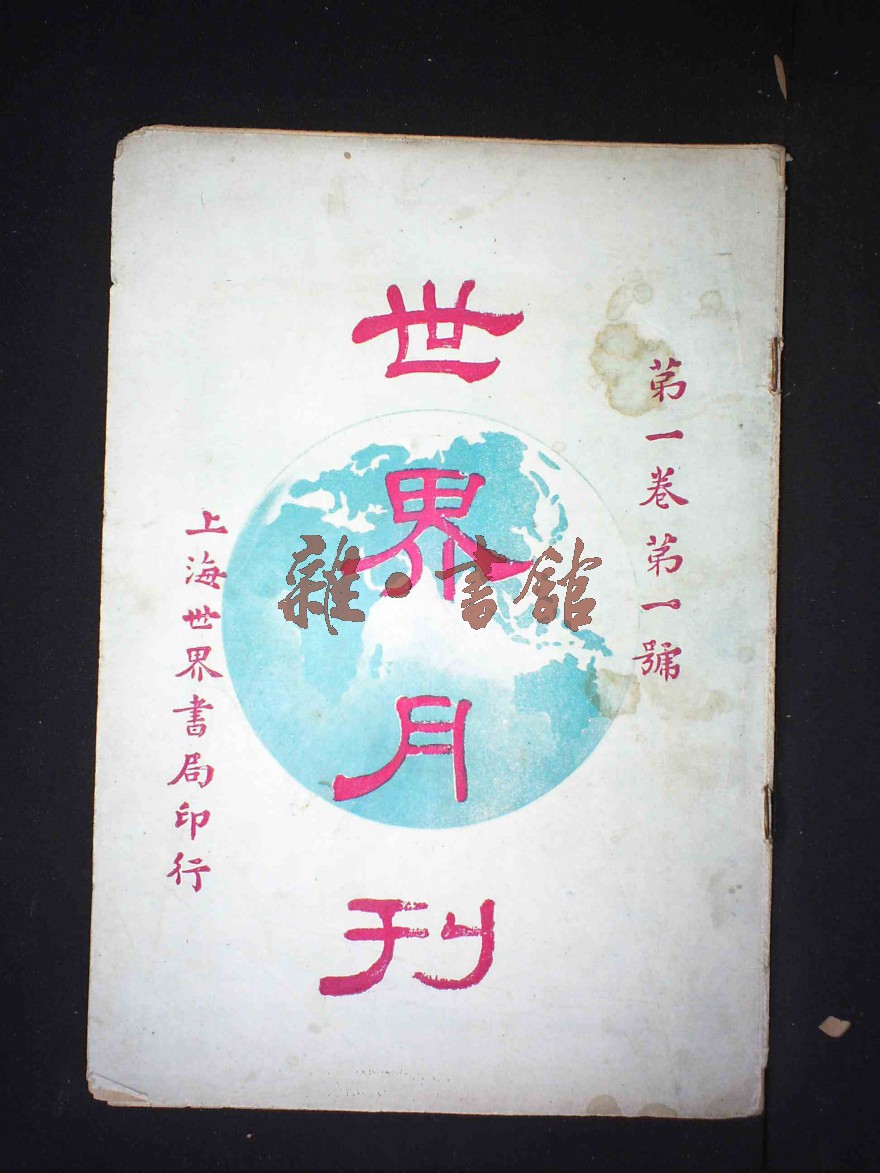 第一卷第一號
世界月刊
上海世界書局印行
雜·書館